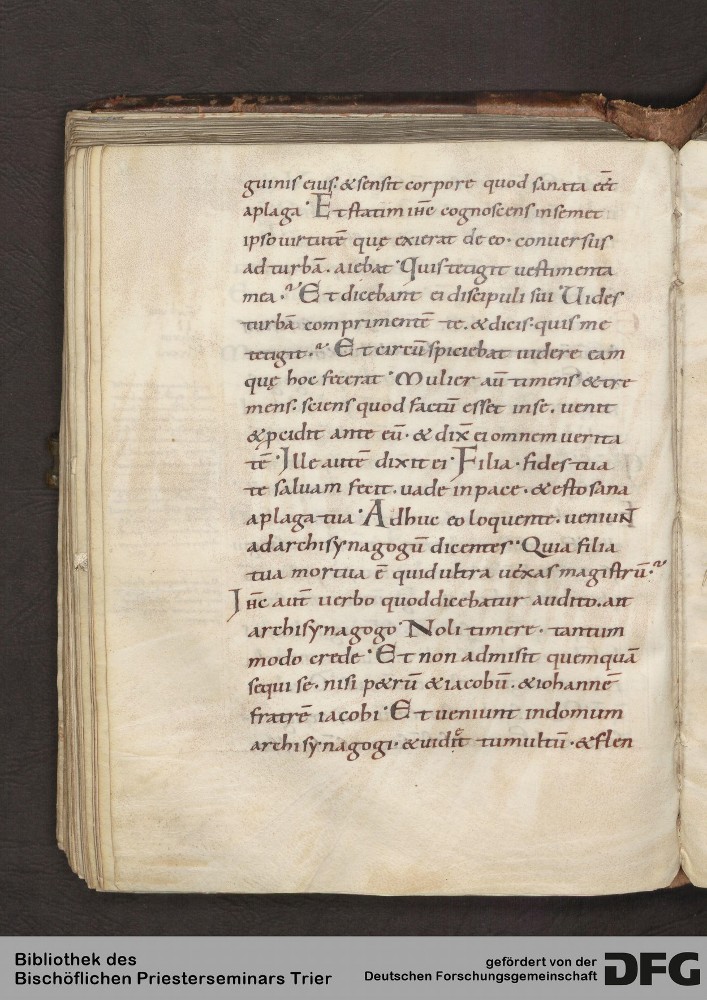 guinis eius. & sensit corpore quod sanata eēt
aplaga. Et statim ihc̄ cognoscens insemet
ipso uirtutē quę exierat deeo. conuersus
adturbā. aiebat. Quis tetigit uestimenta
mea.? Et dicebant ei discipuli sui. Uides
turbā comprimentē te. & dicis. quis me
tetigit.? Et circū spiciebat uidere eam
quę hoc fecerat. Mulier aū timens & tre
mens. sciens quod factū esset inse. uenit
& pcidit ante eū. & dix̄ ei omnem uerita
tē. Ille autē dixit ei. Filia. fides tua
te saluam fecit. uade inpace. & esto sana
aplaga tua. Adhuc eo loquente. ueniuNT
adarchisynagogū dicentes. Quia filia
tua mortua ē quid ultra uexas magistrū.?
Ihc̄ aut̄ uerbo quod dicebatur audito. ait
archisynagogo. Noli timere. tantum
modo crede. Et non admisit quemquā
sequi se. nisi p&rū & iacobū. & iohannē
fratrē iacobi. Et ueniunt indomum
archisynagogi. & uidit tumultū. & flen
Bibliothek des
Bischöflichen Priesterseminars Trier
gefördert von der
Deutschen Forschungsgemeinschaft
DFG